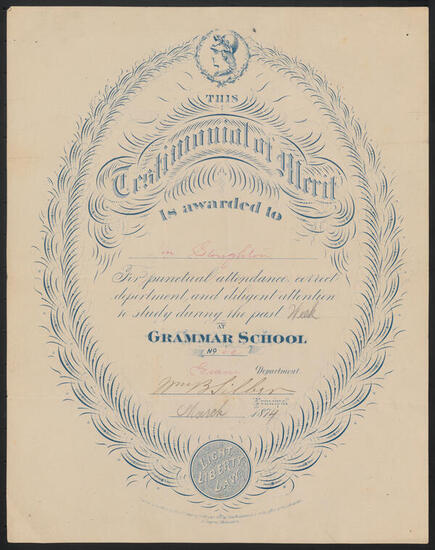 THIS
Testimonial of Merit
Is awarded to
For punctual attendance, correct
deportment, and diligent attention
to study during the past Week
AT
GRAMMAR SCHOOL
No
Gram Department
Wm B Silber
PRINCIPAL
March 1874
LIGHT
LIBERTY
LAW